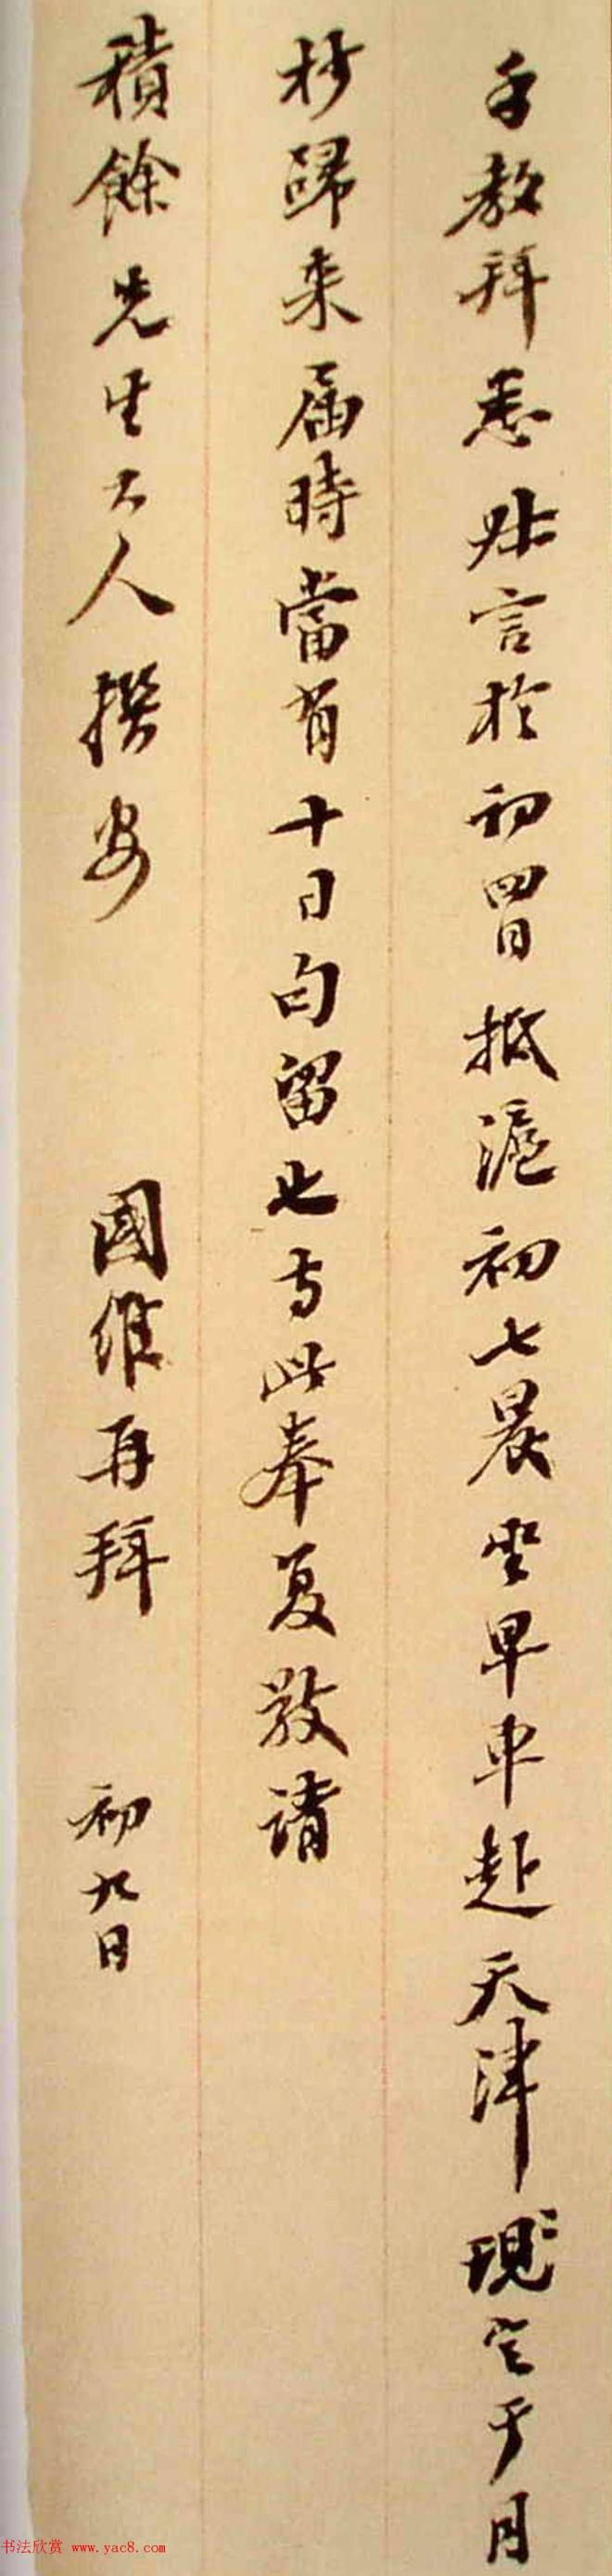 手教拜悉叔言於初四日抵滬初七晨坐早車赴天津現定于月
杪歸来届時當有十日勾留也專此奉复敬请
積餘先生大人撰安 國維再拜 初九日
书法欣赏 www.yac8.com